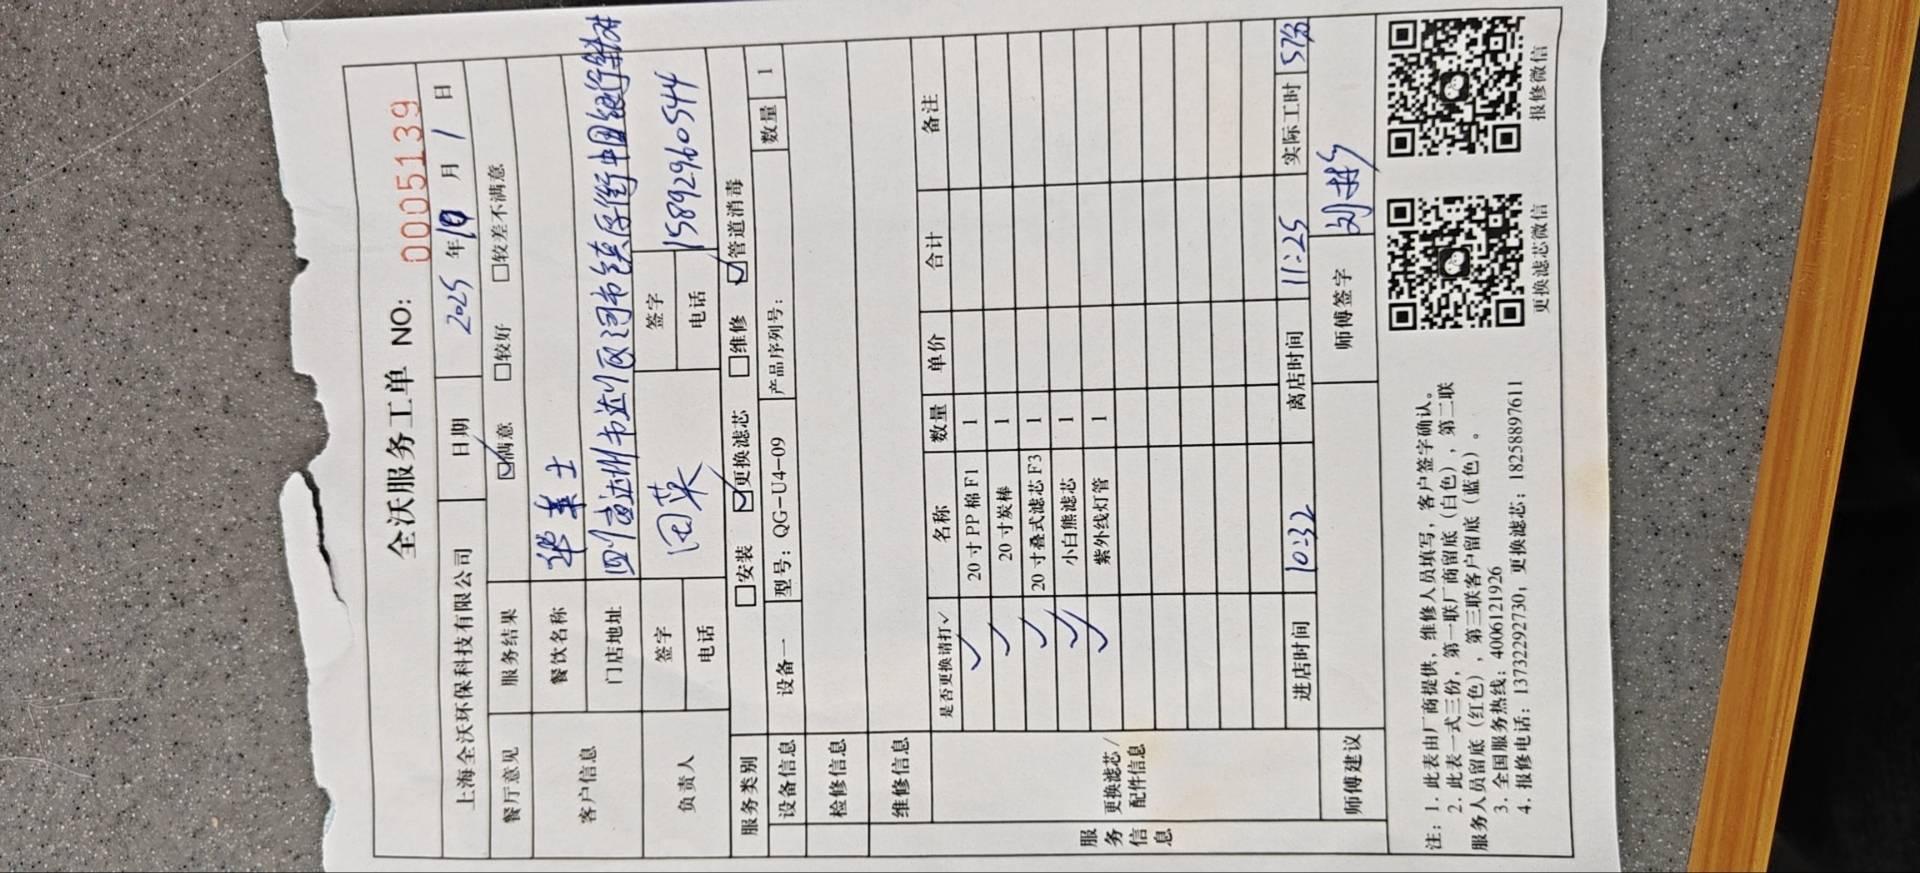 全沃服务工单 NO: 00005139
上海全沃环保科技有限公司 日期 2025 年 10 月 1 日
餐厅意见 服务结果 ☑满意 □较好 □较差不满意
客户信息 餐饮名称 华莱士
门店地址 四川省达州市达川区河市镇 街中国银行
负责人 签字 田英 签字
电话 电话 15892960544
服务类别 □安装 ☑更换滤芯 □维修 ☑管道消毒
设备信息 设备一 型号: QG-U4-09 产品序列号: 数量 1
检修信息
维修信息
服务信息
更换滤芯/配件信息
是否更换请打✓ 名称 数量 单价 合计 备注
✓ 20 寸 PP 棉 F1 1
✓ 20 寸炭棒 1
✓ 20 寸叠式滤芯 F3 1
✓ 小白熊滤芯 1
✓ 紫外线灯管 1
进店时间 10:32 离店时间 11:25 实际工时 57分
师傅建议 师傅签字
注: 1. 此表由厂商提供, 维修人员填写, 客户签字确认。
2. 此表一式三份, 第一联厂商留底 (白色), 第二联
服务人员留底 (红色), 第三联客户留底 (蓝色)。
3. 全国服务热线: 4006121926
4. 报修电话: 13732292730; 更换滤芯: 18258897611
更换滤芯微信
报修微信